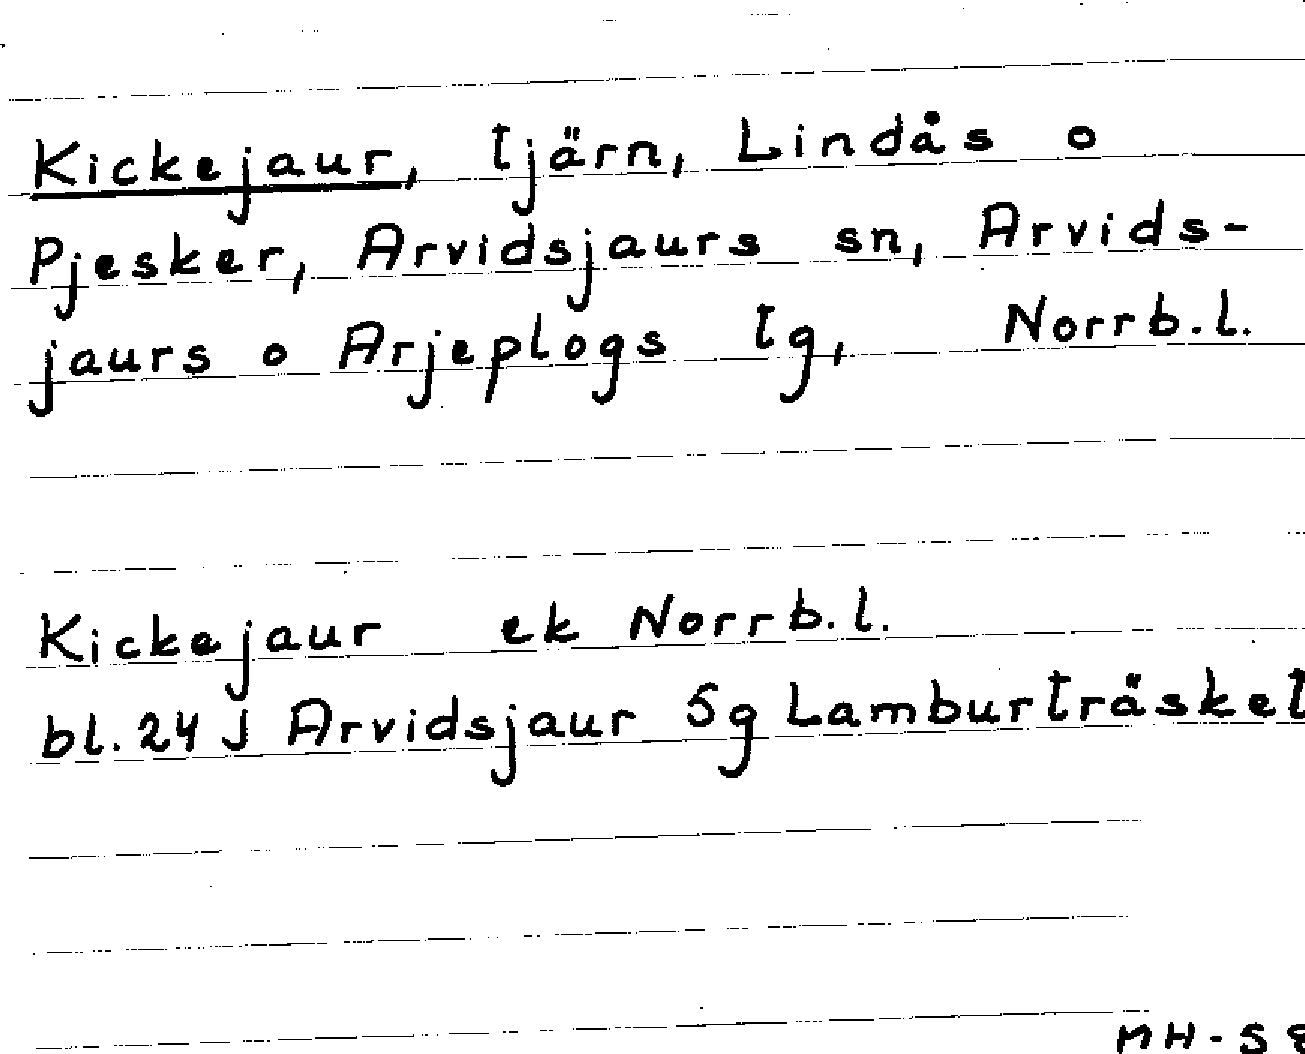 Kickejaur, tjärn, Lindås o
Pjesker, Arvidsjaurs sn, Arvids-
jaurs o Arjeplogs tg, Norrb.l.
Kickejaur ek Norrb.l.
bl. 24 J Arvidsjaur 5g Lamburträsket
MH-58